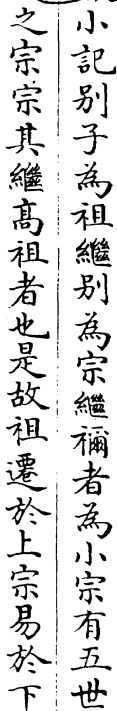 小記别子為祖繼别為宗繼禰者為小宗有五世
之宗宗其繼髙祖者也是故祖遷於上宗易於下